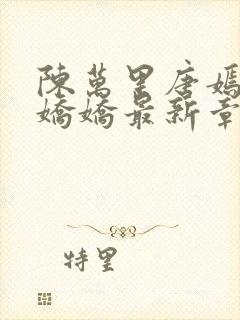 陳萬里唐嫣
嬌嬌最新章
特里